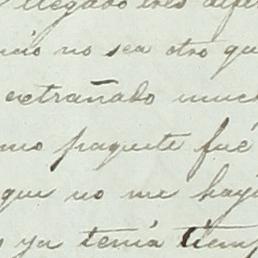 llegado tres dife
ncio no sea otro qu
extrañado muc
mo paquete fué
que no me hay
s ya tenía tiem